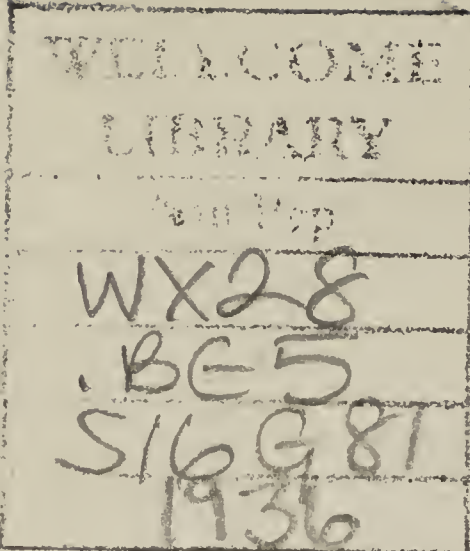 WELLCOME
LIBRARY
Gen Coll
WX28
.BE5
S16G81
1936